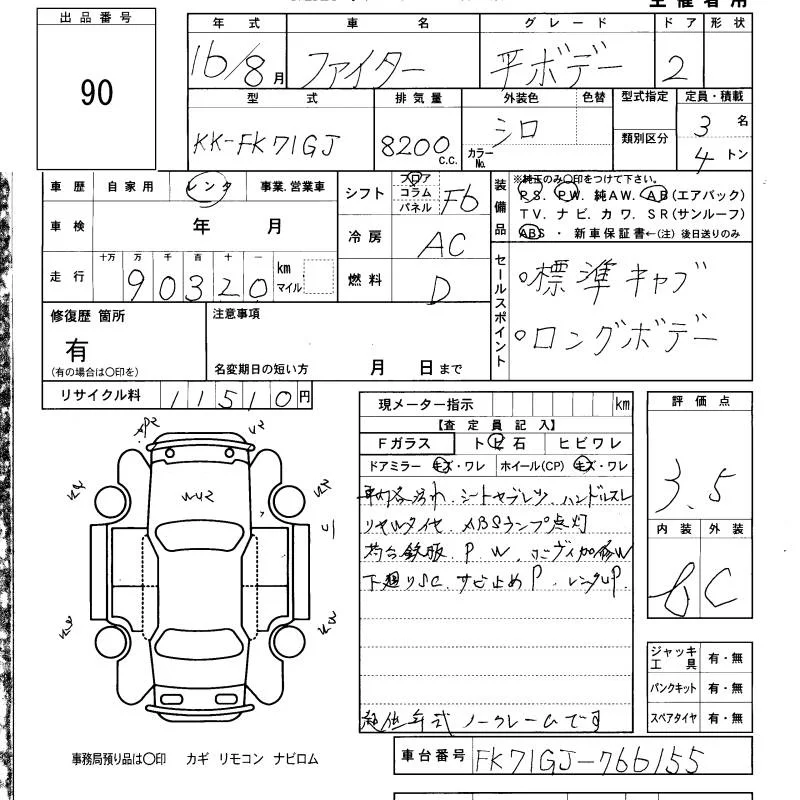 出品番号
90
年式 車名 グレード ドア 形状
16/8月 ファイター 平ボデー 2
型式 排気量 外装色 色替 型式指定 定員・積載
KK-FK71GJ 8200c.c. シロ カラーNo. 類別区分 3名 4トン
車歴 自家用 レンタ 事業.営業車
車検 年 月
走行 十万 万 千 百 十 一
90320 km マイル
シフト フロア コラム パネル F6
冷房 AC
燃料 D
装備品 ※純正のみ〇印をつけて下さい。
PS. PW. 純AW. AB(エアバック)
TV. ナビ. カワ. SR(サンルーフ)
ABS ・ 新車保証書←(注) 後日送りのみ
セールスポイント
○標準キャブ
○ロングボデー
修復歴 箇所
有
(有の場合は〇印を)
注意事項
名変期日の短い方 月 日まで
リサイクル料 11510円
現メーター指示 km
【査定員記入】
Fガラス トビ石 ヒビワレ
ドアミラー キズ・ワレ ホイール(CP) キズ・ワレ
シートヤブレ ハンドルスレ
ABSランプ点灯
P. W.
下廻りSC. P.
ノークレームです
評価点
3.5
内装 外装
C
ジャッキ工具 有・無
パンクキット 有・無
スペアタイヤ 有・無
W2
事務局預り品は〇印 カギ リモコン ナビロム
車台番号 FK71GJ-766155